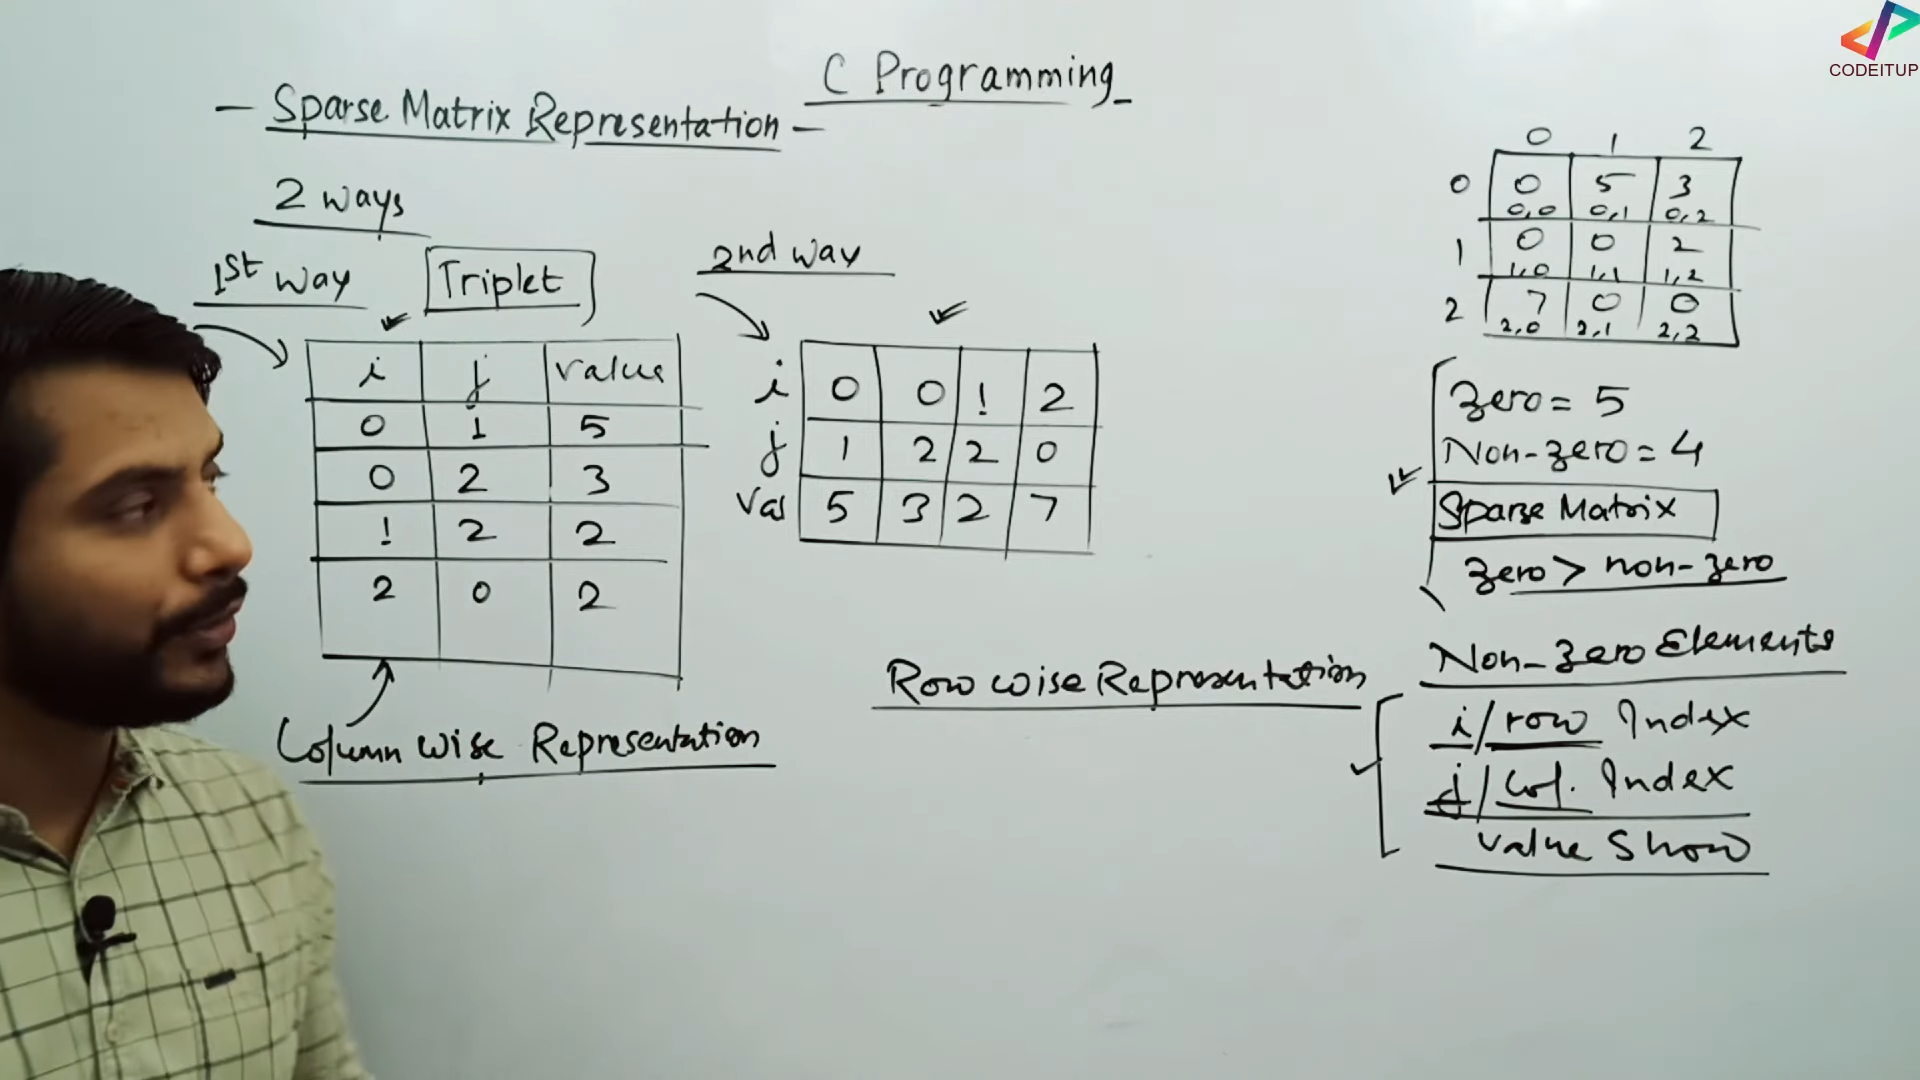 C Programming
- Sparse Matrix Representation -
2 ways
1st way
Triplet
i j value
0 1 5
0 2 3
1 2 2
2 0 2
Column wise Representation
2nd way
i 0 0 1 2
j 1 2 2 0
Val 5 3 2 7
Row wise Representation
0 1 2
0 0 5 3
0,0 0,1 0,2
1 0 0 2
1,0 1,1 1,2
2 7 0 0
2,0 2,1 2,2
Zero = 5
Non-zero = 4
Sparse Matrix
Zero > non-zero
Non-Zero Elements
i/row Index
j/Col. Index
value Show
CODEITUP